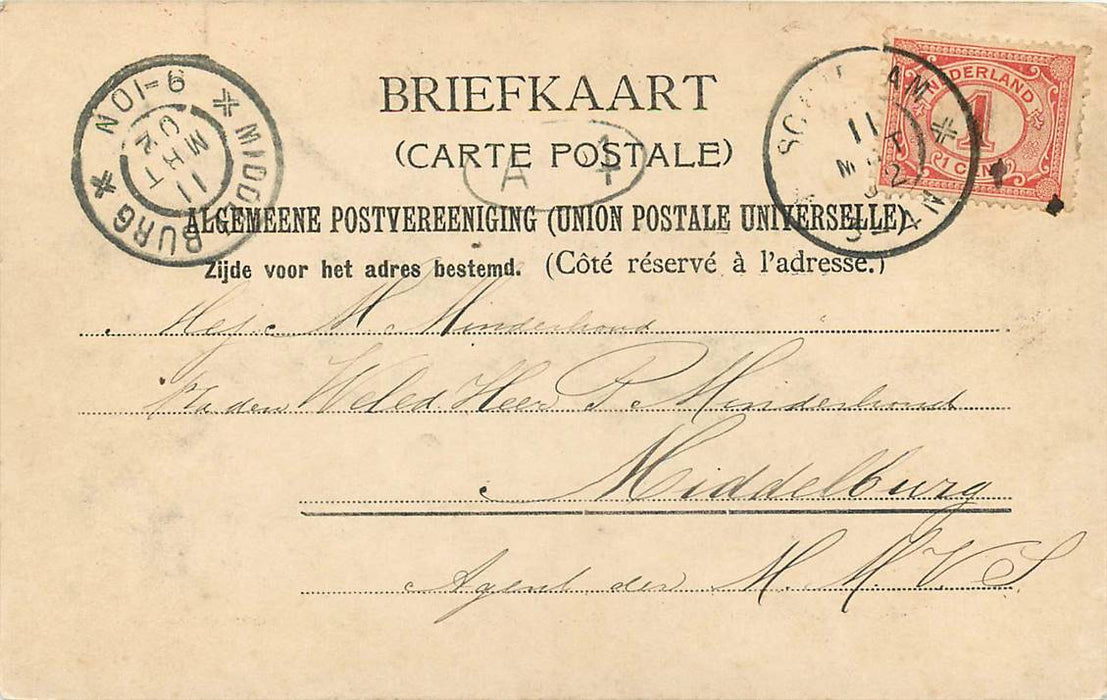 BRIEFKAART
(CARTE POSTALE)
ALGEMEENE POSTVEREENIGING (UNION POSTALE UNIVERSELLE)
Zijde voor het adres bestemd. (Côté réservé à l'adresse.)
NEDERLAND
1
1 CENT
MIDDELBURG
11 MRT 02
9-10N
11 MRT 02
3-4N
A 4
M Minderhoud
Weled. Heer P Minderhoud
Middelburg
Agent der M. M. V. S